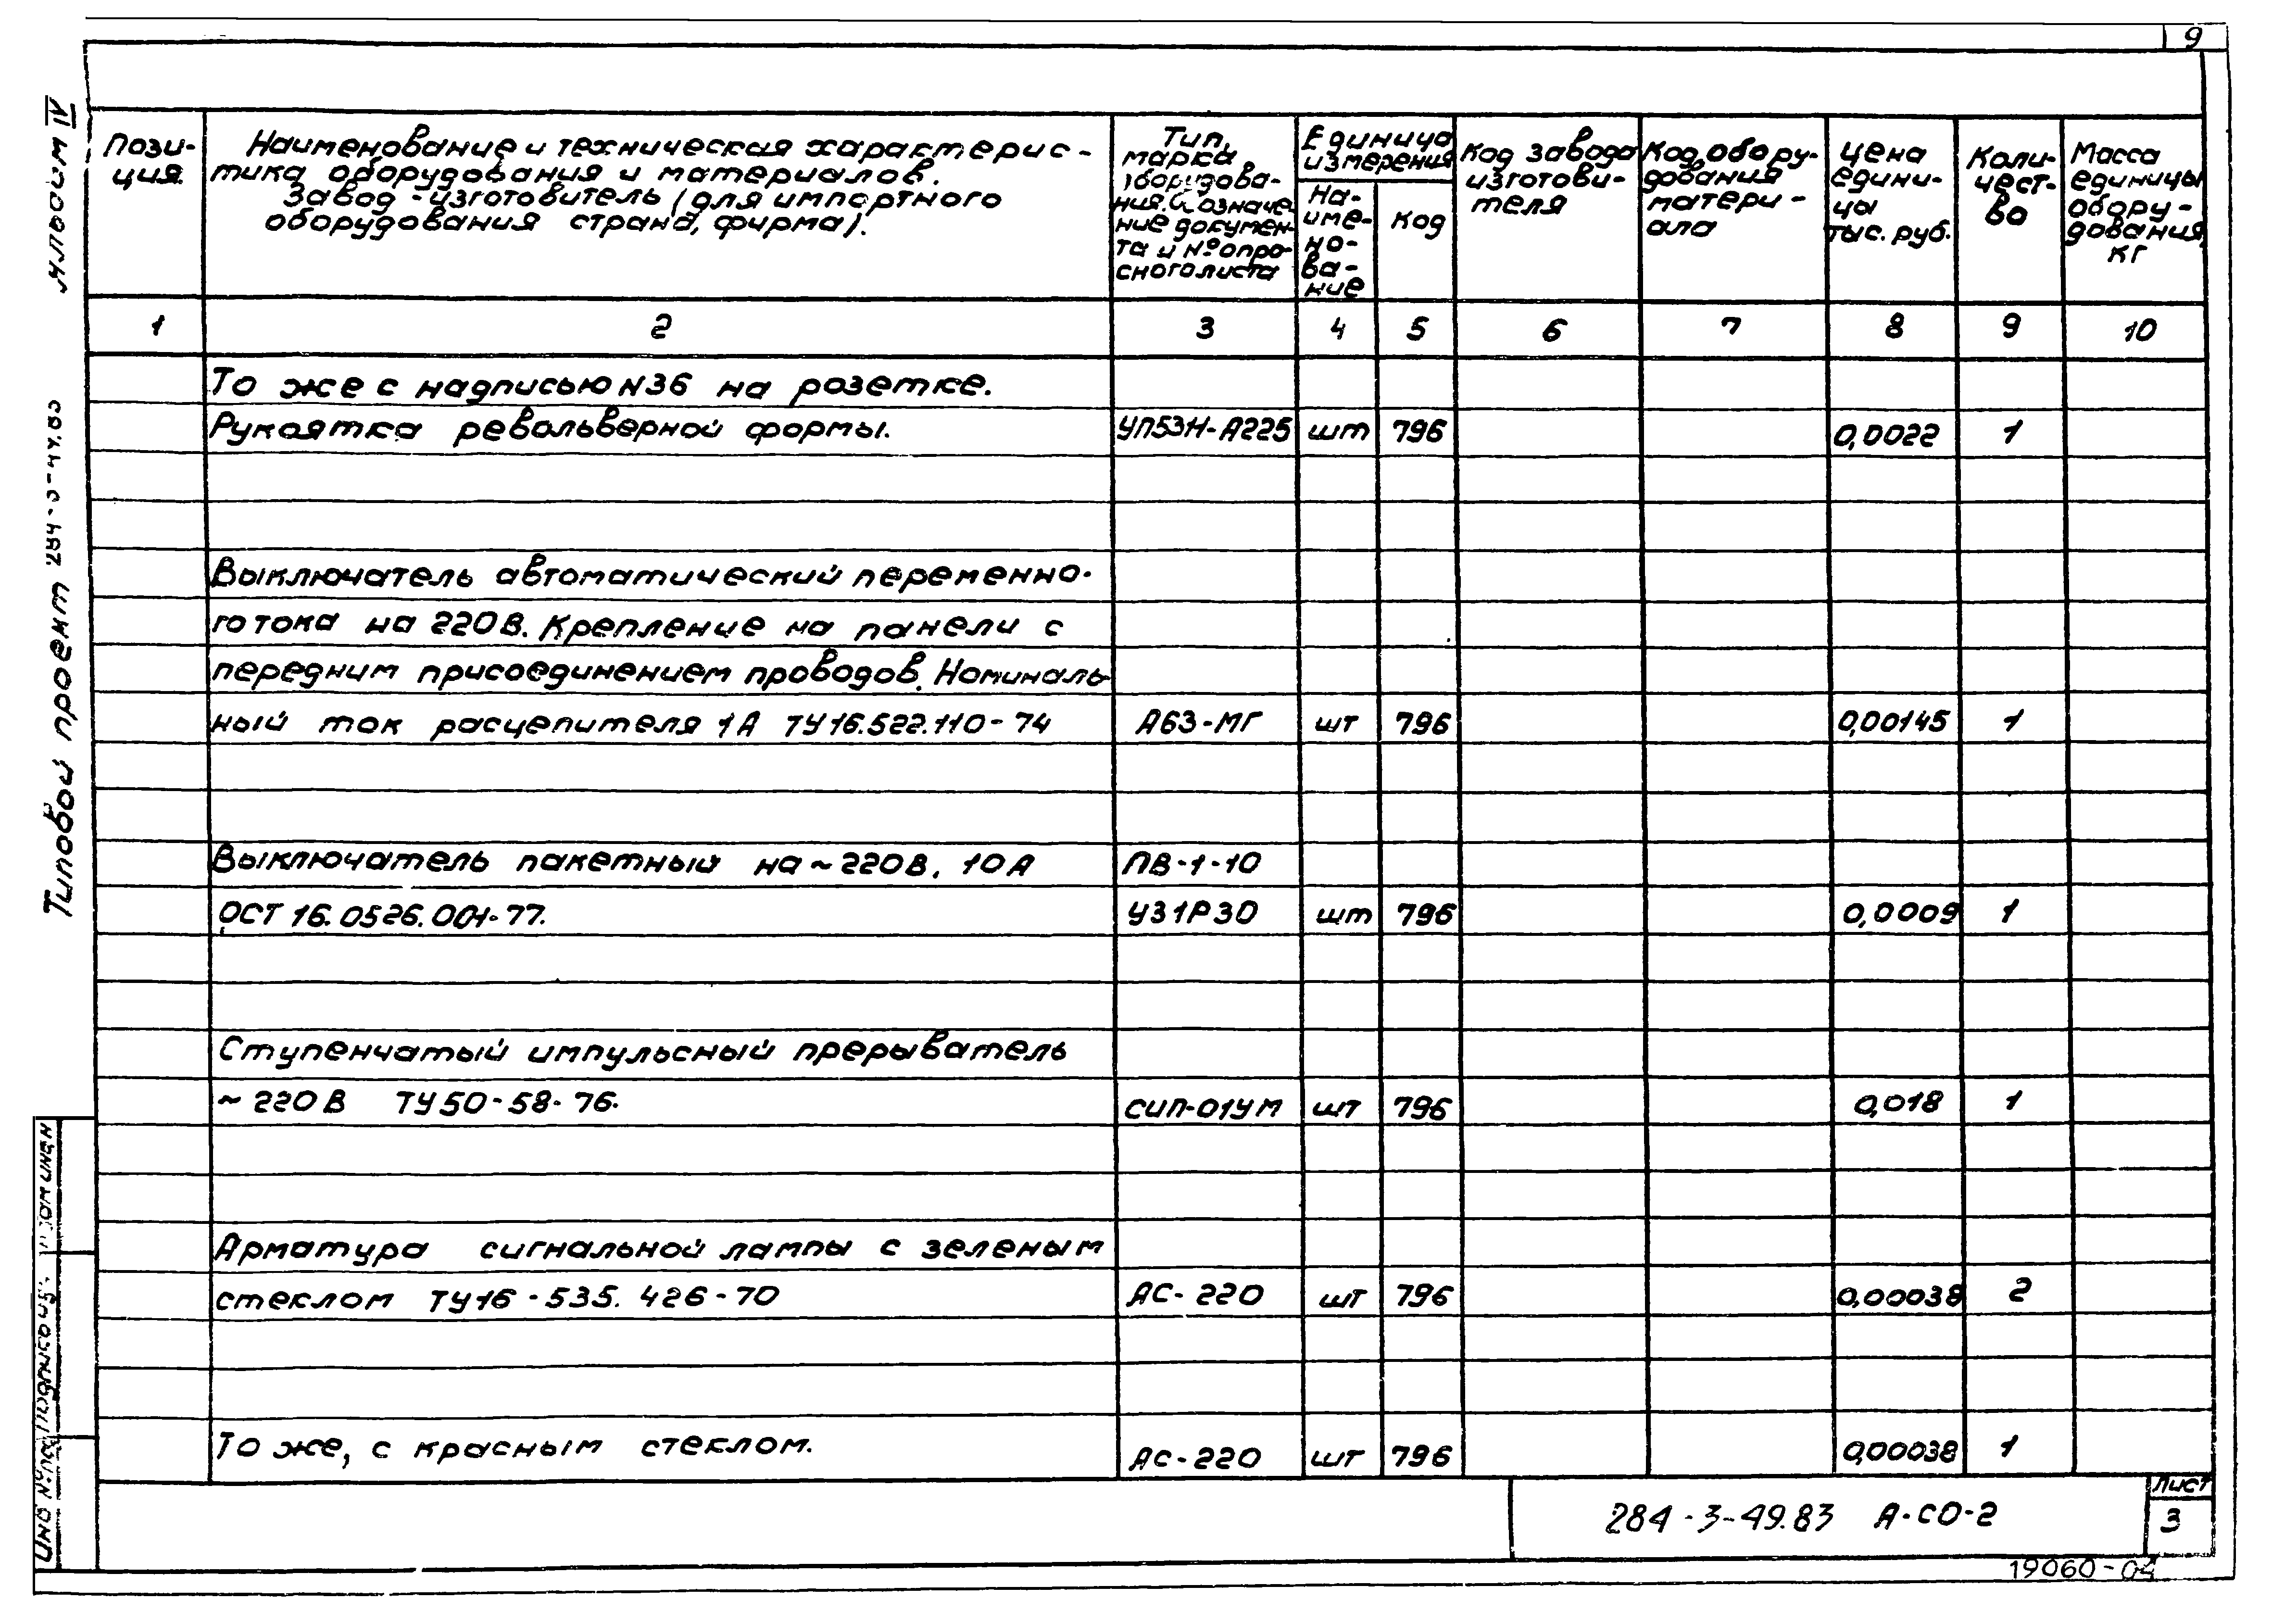 9
Альбом IV
Типовой проект 284-3-49.83
Пози-
ция.
Наименование и техническая характерис-
тика оборудования и материалов.
Завод-изготовитель (для импортного
оборудования страна, фирма).
Тип,
марка
оборудова-
ния. Обозначе
ние докумен-
та и № опро-
сного листа
Единица
измерения
На-
име-
но-
ва-
ние
код
Код завода
изготови-
теля
Код обору-
дования
матери-
ала
Цена
едини-
цы
тыс. руб.
Коли-
чест-
во
Масса
единицы
обору-
дования,
кг
1 2 3 4 5 6 7 8 9 10
То же с надписью N36 на розетке.
Рукоятка револьверной формы. УП53Н-А225 шт 796 0,0022 1
Выключатель автоматический переменно-
го тока на 220 В. Крепление на панели с
передним присоединением проводов. Номиналь-
ный ток расцепителя 1А ТУ16.522.110-74 А63-МГ шт 796 0,00145 1
Выключатель пакетный на ~220В, 10А ПВ-1-10
ОСТ 16.0526.001-77. У31Р30 шт 796 0,0009 1
Ступенчатый импульсный прерыватель
~220В ТУ50-58-76. СИП-01УМ шт 796 0,018 1
Арматура сигнальной лампы с зеленым
стеклом ТУ16-535.426-70 АС-220 шт 796 0,00038 2
То же, с красным стеклом. АС-220 шт 796 0,00038 1
284-3-49.83 А-СО-2
Лист
3
19060-04